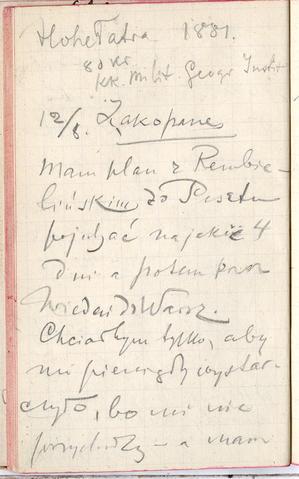 Hohe Tatra 1881.
80 Kr.
KK. Milit. Geogr Instit
12/8. Zakopane
Mam plan z Rembie-
lińskim do Pesztu
pojechać na jakie 4
dni a potem przez
Wiedeń do Warsz.
Chciałbym tylko, aby
mi pieniędzy wystar-
czyło, bo mi nie
przychodzą – a mam